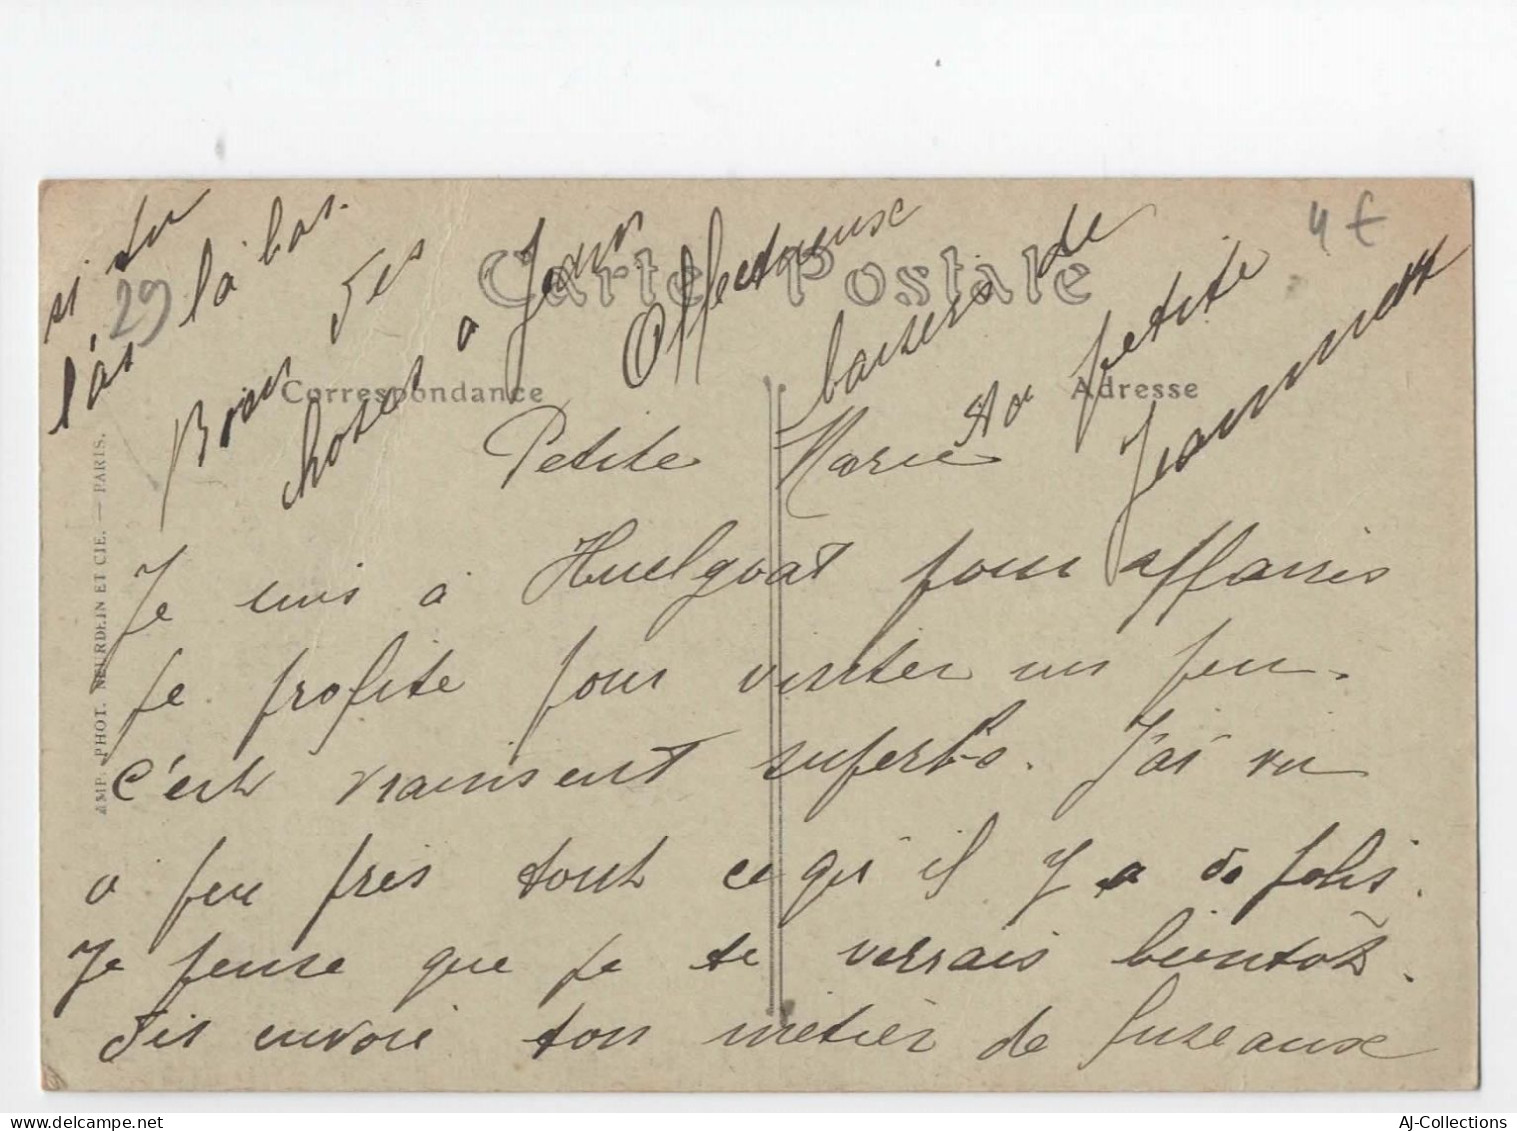 Carte Postale
Correspondance
Adresse
AMP. PHOT. NEURDEIN ET CIE. — PARIS.
29
4 €
Petite Marie
Je suis à Huelgoat pour affaires
je profite pour visiter un peu.
c'est vraiment superbe. J'ai vu
à peu près tout ce qu'il y a de jolis.
Je pense que je te verrais bientôt.
envoie ton métier de fuseaux
si tu
l'as là bas.
Bien des
choses à Jean
Affectueux
baisers de
ta petite
Jeannette
AJ-Collections
delcampe.net